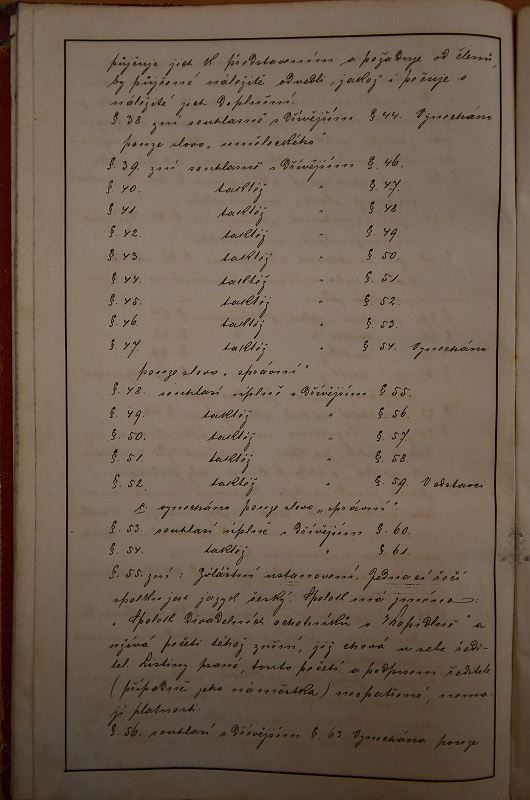 půjčuje jich k představením a požaduje od členů,
by půjčené náležitě odvedli, jakož i pečuje o
náležité jich doplnění.
§. 38. zní souhlasně s dřívějším §. 44. Vynecháno
pouze slovo „uměleckého"
§. 39. zní souhlasně s dřívějším §. 46.
§. 40. taktéž " §. 47.
§. 41. taktéž " §. 48.
§. 42. taktéž " §. 49.
§. 43. taktéž " §. 50.
§. 44. taktéž " §. 51.
§. 45. taktéž " §. 52.
§. 46. taktéž " §. 53.
§. 47. taktéž " §. 54. Vynecháno
pouze slovo „správní"
§. 48. souhlasí úplně s dřívějším §. 55.
§. 49. taktéž " §. 56.
§. 50. taktéž " §. 57.
§. 51. taktéž " §. 58.
§. 52. taktéž " §. 59. V odstavci
vynecháno pouze slovo „správní".
§. 53. souhlasí úplně s dřívějším §. 60.
§. 54. taktéž " §. 61.
§. 55. zní: Zvláštní ustanovení. Jednací řečí
spolku jest jazyk český. Spolek má jméno:
„Spolek divadelních ochotníků v Chopidlně" a
užívá pečeti téhož znění, jež chová u sebe ředi-
tel. Listiny psané, touto pečetí a podpisem ředitele
(případně jeho náměstka) neopatřené, nema-
jí platnosti.
§. 56. souhlasí s dřívějším §. 63. Vynecháno pouze